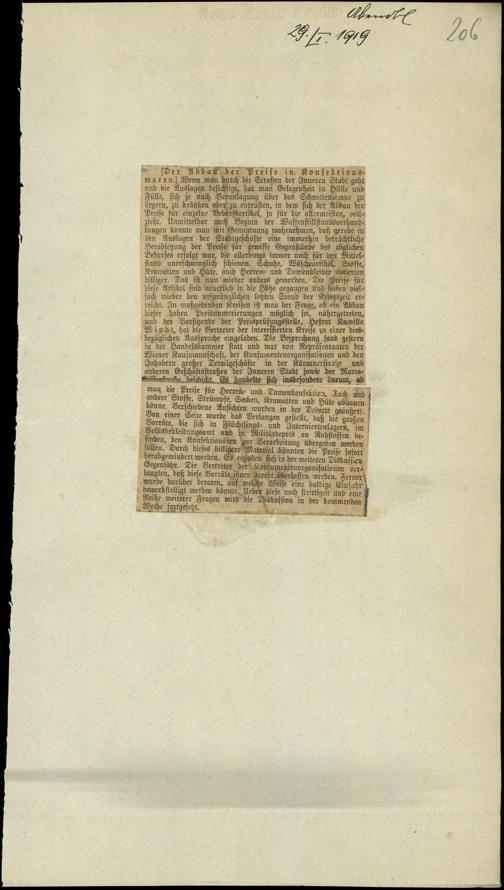 Abendbl
29./I. 1919
206
[Der Abbau der Preise in Konfektions-
waren.] Wenn man durch die Straßen der Inneren Stadt geht
und die Auslagen besichtigt, hat man Gelegenheit in Hülle und
Fülle, sich je nach Veranlagung über das Schneckentempo zu
ärgern, zu kränken oder zu entrüsten, in dem sich der Abbau der
Preise für einzelne Bedarfsartikel, ja für die allermeisten, voll-
zieht. Unmittelbar nach Beginn der Waffenstillstandsverhand-
lungen konnte man mit Genugtuung wahrnehmen, daß gerade in
den Auslagen der Stadtgeschäfte eine immerhin beträchtliche
Herabsetzung der Preise für gewisse Gegenstände des täglichen
Bedarfes erfolgt war, die allerdings immer noch für den Mittel-
stand unerschwinglich schienen. Schuhe, Wäscheartikel, Stoffe,
Krawatten und Hüte, auch Herren- und Damenkleider notierten
billiger. Das ist nun wieder anders geworden. Die Preise für
diese Artikel sind neuerlich in die Höhe gegangen und haben viel-
fach wieder den ursprünglichen letzten Stand der Kriegszeit er-
reicht. In maßgebenden Kreisen ist man der Frage, ob ein Abbau
dieser hohen Preisnumerierungen möglich sei, nähergetreten,
und der Vorsitzende der Preisprüfungsstelle, Hofrat Kamillo
Windt, hat die Vertreter der interessierten Kreise zu einer dies-
bezüglichen Aussprache eingeladen. Die Besprechung fand gestern
in der Handelskammer statt und war von Repräsentanten der
Wiener Kaufmannschaft, der Konsumentenorganisationen und den
Inhabern großer Detailgeschäfte in der Kärntnerstraße und
anderen Geschäftsstraßen der Inneren Stadt sowie der Maria-
hilferstraße beschickt. Es handelte sich insbesondere darum, ob
man die Preise für Herren- und Damenkonfektion, Tuch und
andere Stoffe, Strümpfe, Socken, Krawatten und Hüte abbauen
könne. Verschiedene Ansichten wurden in der Debatte geäußert.
Von einer Seite wurde das Verlangen gestellt, daß die großen
Vorräte, die sich in Flüchtlings- und Interniertenlagern, im
Volksbekleidungsamt und in Militärdepots an Rohstoffen be-
finden, den Konfektionären zur Verarbeitung übergeben werden
sollen. Durch dieses billigere Material könnten die Preise sofort
herabgemindert werden. Es ergaben sich in der weiteren Diskussion
Gegensätze. Die Vertreter der Konsumentenorganisationen ver-
langten, daß diese Vorräte ihnen direkt überlassen werden. Ferner
wurde darüber beraten, auf welche Weise eine baldige Einfuhr
bewerkstelligt werden könnte. Ueber diese noch strittigen und eine
Reihe weiterer Fragen wird die Diskussion in der kommenden
Woche fortgesetzt.